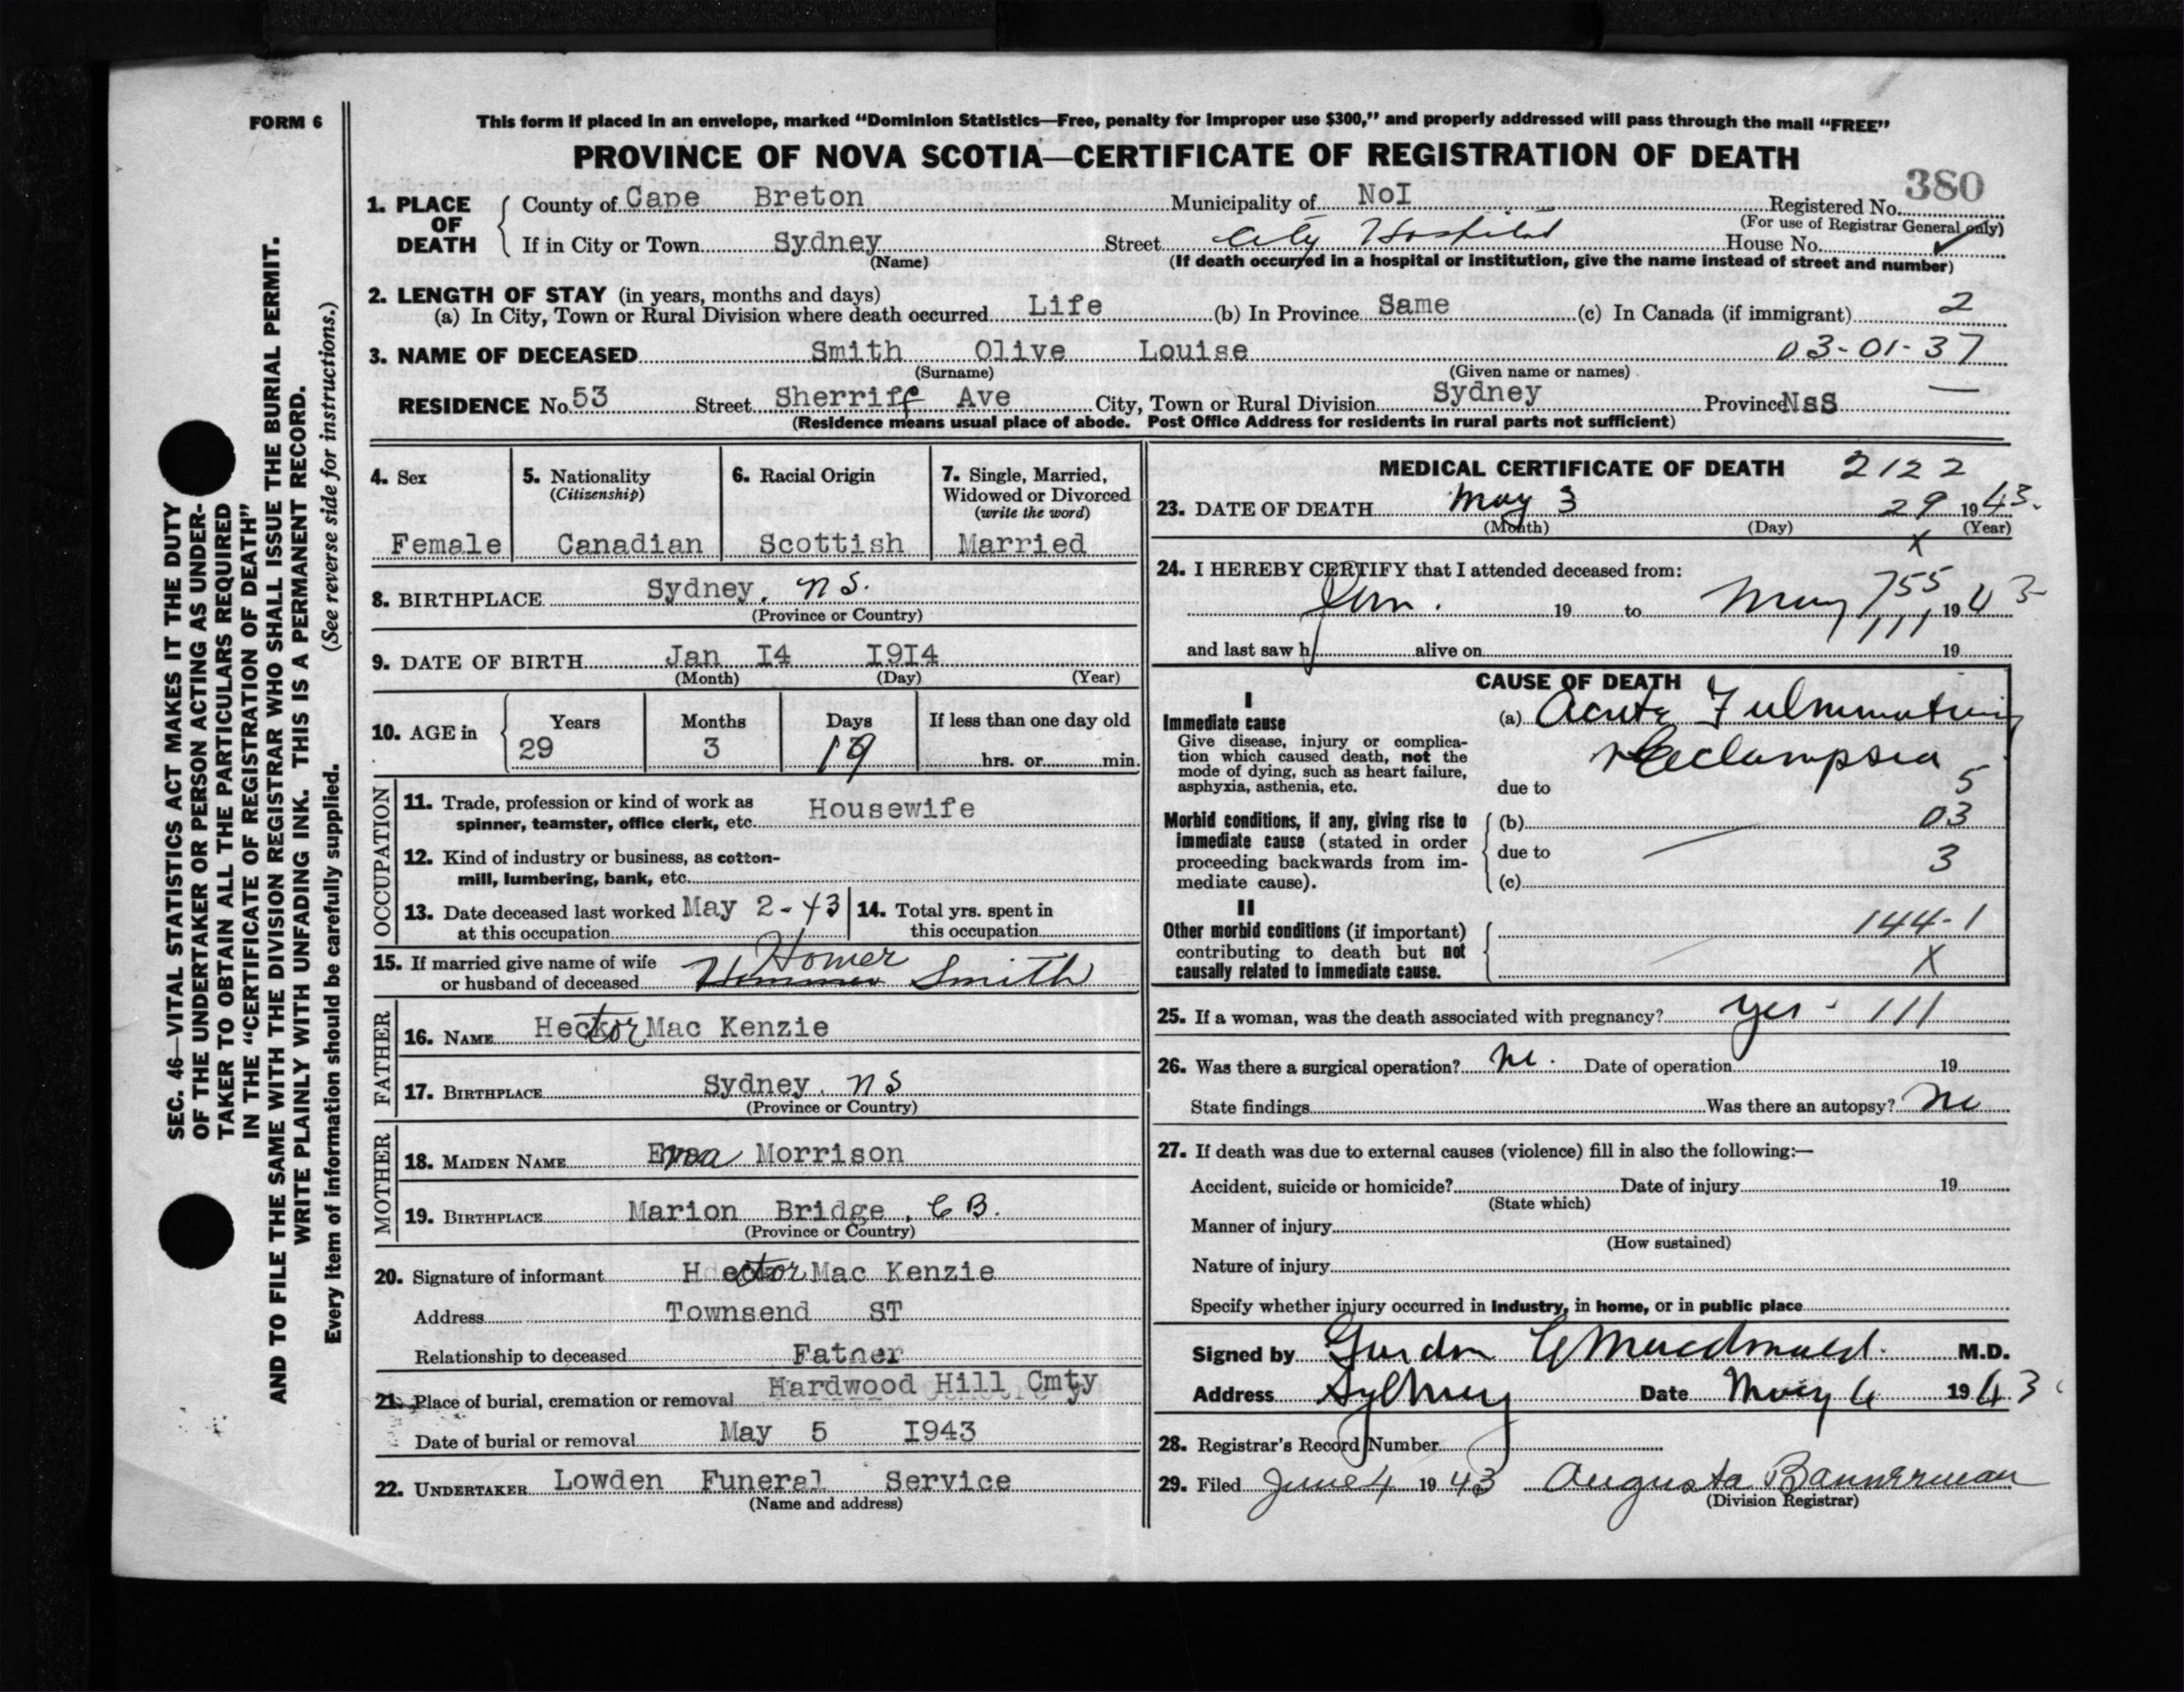 FORM 6
This form if placed in an envelope, marked “Dominion Statistics—Free, penalty for improper use $300,” and properly addressed will pass through the mail “FREE”
PROVINCE OF NOVA SCOTIA—CERTIFICATE OF REGISTRATION OF DEATH
380
1. PLACE OF DEATH County of Cape Breton Municipality of NoI Registered No.
(For use of Registrar General only)
If in City or Town Sydney Street City Hospital House No.
(Name) (If death occurred in a hospital or institution, give the name instead of street and number)
2. LENGTH OF STAY (in years, months and days)
(a) In City, Town or Rural Division where death occurred Life (b) In Province Same (c) In Canada (if immigrant) 2
3. NAME OF DECEASED Smith Olive Louise 03-01-37
(Surname) (Given name or names)
RESIDENCE No. 53 Street Sherriff Ave City, Town or Rural Division Sydney Province NsS
(Residence means usual place of abode. Post Office Address for residents in rural parts not sufficient)
4. Sex
Female
5. Nationality
(Citizenship)
Canadian
6. Racial Origin
Scottish
7. Single, Married,
Widowed or Divorced
(write the word)
Married
8. BIRTHPLACE Sydney, N S.
(Province or Country)
9. DATE OF BIRTH Jan I4 I9I4
(Month) (Day) (Year)
10. AGE in
Years Months Days If less than one day old
29 3 19 hrs. or min.
OCCUPATION
11. Trade, profession or kind of work as
spinner, teamster, office clerk, etc. Housewife
12. Kind of industry or business, as cotton-
mill, lumbering, bank, etc.
13. Date deceased last worked May 2-43
at this occupation
14. Total yrs. spent in
this occupation
15. If married give name of wife Homer
or husband of deceased Smith
FATHER
16. NAME Hector Mac Kenzie
17. BIRTHPLACE Sydney, N S
(Province or Country)
MOTHER
18. MAIDEN NAME Morrison
19. BIRTHPLACE Marion Bridge, C B.
(Province or Country)
20. Signature of informant Hector Mac Kenzie
Address Townsend ST
Relationship to deceased Father
21. Place of burial, cremation or removal Hardwood Hill Cmty
Date of burial or removal May 5 I943
22. UNDERTAKER Lowden Funeral Service
(Name and address)
MEDICAL CERTIFICATE OF DEATH 2122
23. DATE OF DEATH May 3 29 1943.
(Month) (Day) (Year)
X
24. I HEREBY CERTIFY that I attended deceased from:
Jan. 19 to May 755, 1943
111
and last saw h alive on 19
CAUSE OF DEATH
I
Immediate cause
Give disease, injury or complica-
tion which caused death, not the
mode of dying, such as heart failure,
asphyxia, asthenia, etc.
(a) Acute Fulminating
Eclampsia
due to 5
Morbid conditions, if any, giving rise to
immediate cause (stated in order
proceeding backwards from im-
mediate cause).
(b) 03
due to 3
(c)
II
Other morbid conditions (if important)
contributing to death but not
causally related to immediate cause.
144-1
X
25. If a woman, was the death associated with pregnancy? yes - 111
26. Was there a surgical operation? no. Date of operation 19
State findings Was there an autopsy? no
27. If death was due to external causes (violence) fill in also the following:—
Accident, suicide or homicide? Date of injury 19
(State which)
Manner of injury
(How sustained)
Nature of injury
Specify whether injury occurred in industry, in home, or in public place
Signed by Gordon Macdonald. M.D.
Address Sydney Date May 6 1943
28. Registrar's Record Number
29. Filed June 4 1943 Augusta Bannerman
(Division Registrar)
SEC. 46—VITAL STATISTICS ACT MAKES IT THE DUTY
OF THE UNDERTAKER OR PERSON ACTING AS UNDER-
TAKER TO OBTAIN ALL THE PARTICULARS REQUIRED
IN THE “CERTIFICATE OF REGISTRATION OF DEATH”
AND TO FILE THE SAME WITH THE DIVISION REGISTRAR WHO SHALL ISSUE THE BURIAL PERMIT.
WRITE PLAINLY WITH UNFADING INK. THIS IS A PERMANENT RECORD.
Every item of information should be carefully supplied. (See reverse side for instructions.)